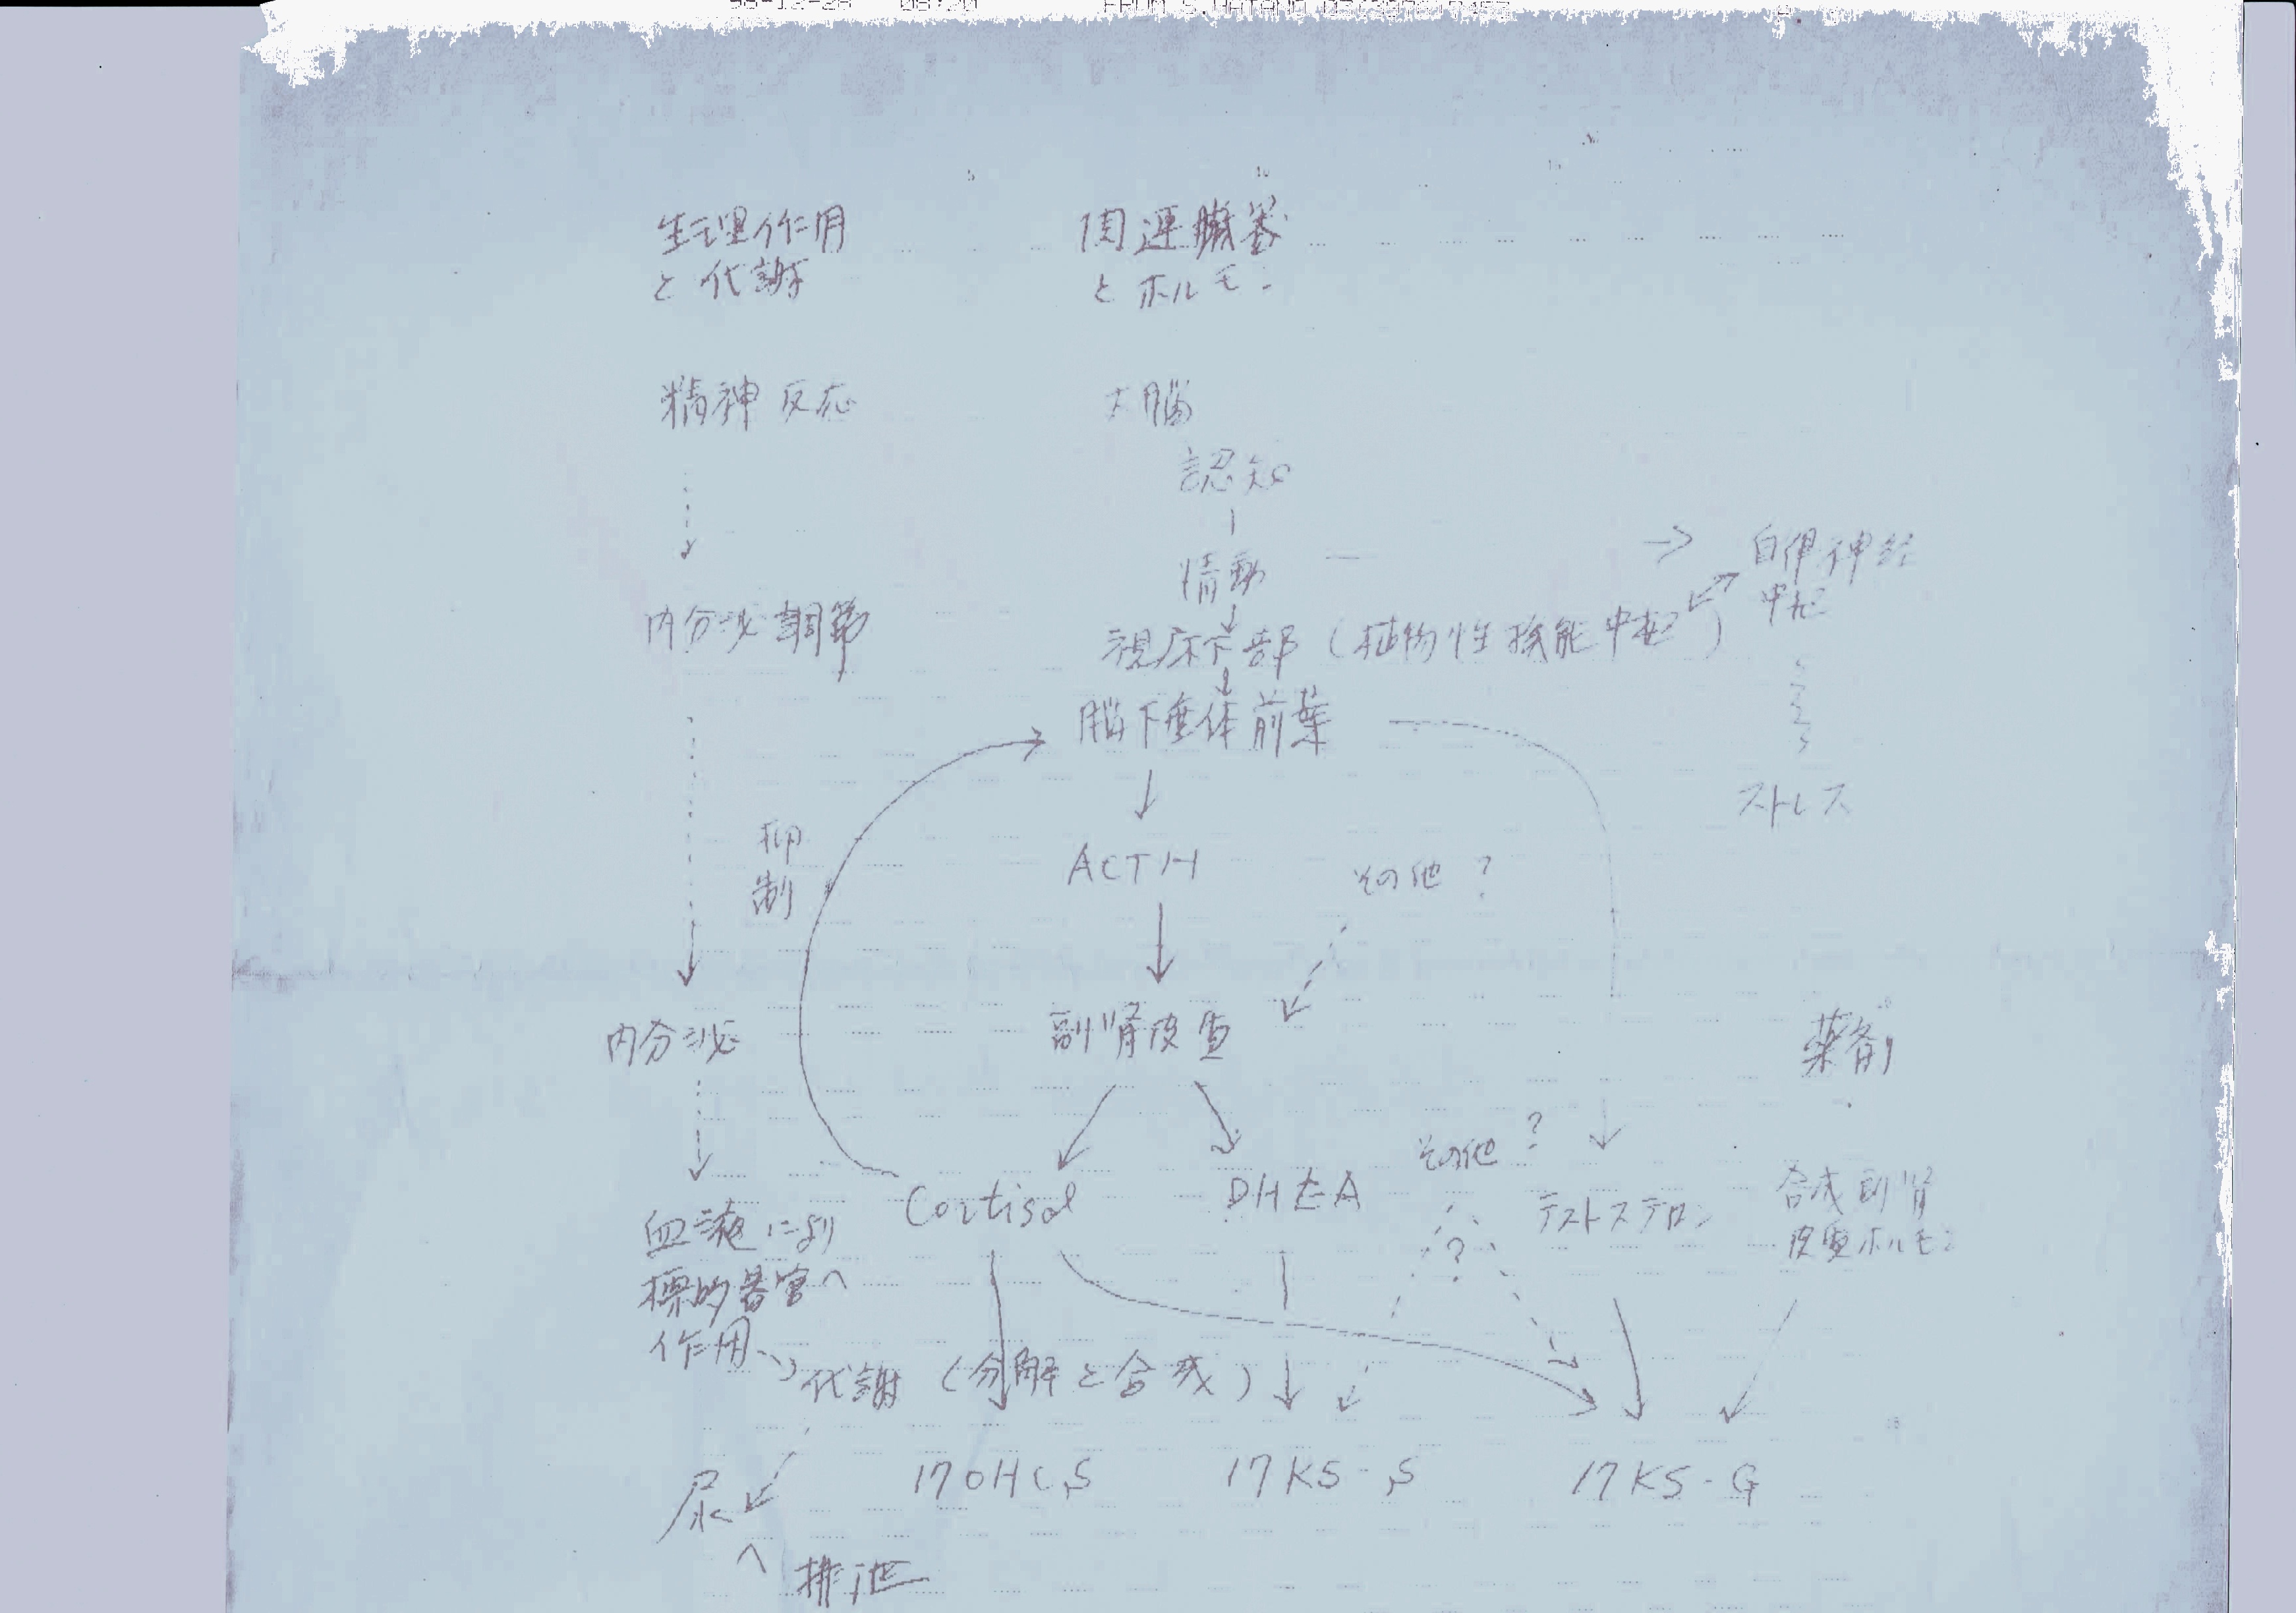 98-12-28 08:20 FROM S.HATANO
生理作用 関連臓器
と代謝 とホルモン
精神反応 大脳
認知
情動 自律神経
中枢
内分泌調節 視床下部(植物性機能中枢)
脳下垂体前葉
ストレス
抑制
ACTH その他?
内分泌 副腎皮質 薬剤
その他?
Cortisol DHEA テストステロン 合成副腎
皮質ホルモン
血液により
標的器官へ
作用
?
代謝(分解と合成)
尿 17OHCS 17KS-S 17KS-G
へ 排泄